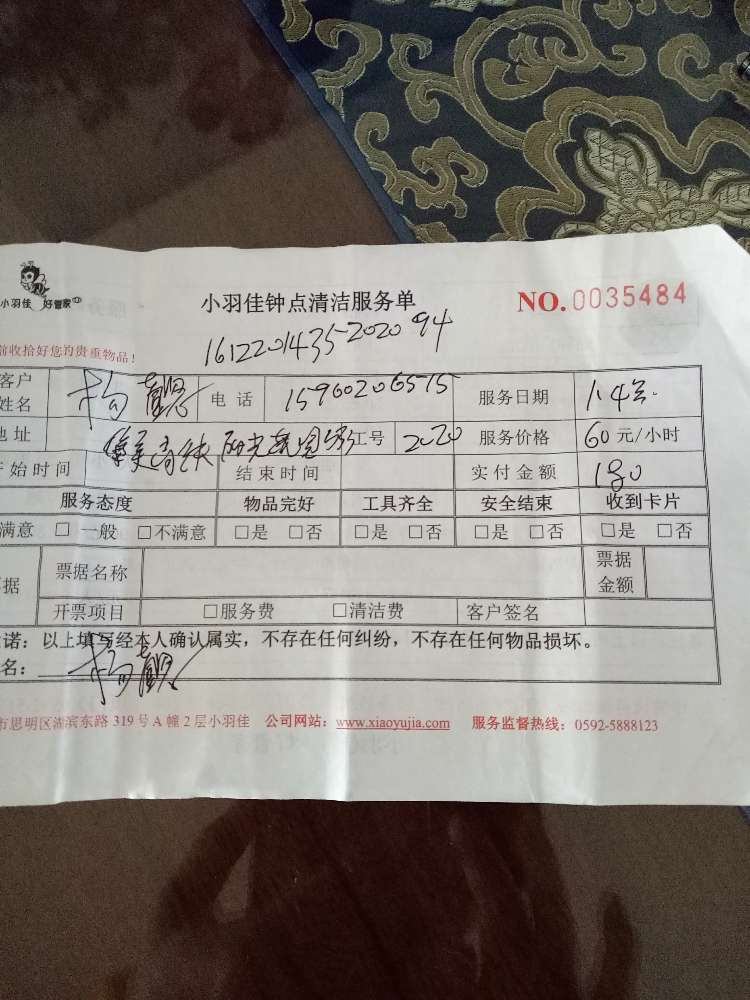 小羽佳 好管家
小羽佳钟点清洁服务单
NO.0035484
1612201435-2020 94
前收拾好您的贵重物品!
客户姓名 杨 电话 15960206515 服务日期
地址 阳光 工号 2020 服务价格 60元/小时
开始时间 结束时间 实付金额 180
服务态度 物品完好 工具齐全 安全结束 收到卡片
满意 □ 一般 □不满意 □是 □否 □是 □否 □是 □否 □是 □否
据 票据名称 票据金额
开票项目 □服务费 □清洁费 客户签名
诺:以上填写经本人确认属实,不存在任何纠纷,不存在任何物品损坏。
名: 杨
市思明区湖滨东路 319 号 A 幢 2 层小羽佳 公司网站:www.xiaoyujia.com 服务监督热线:0592-5888123